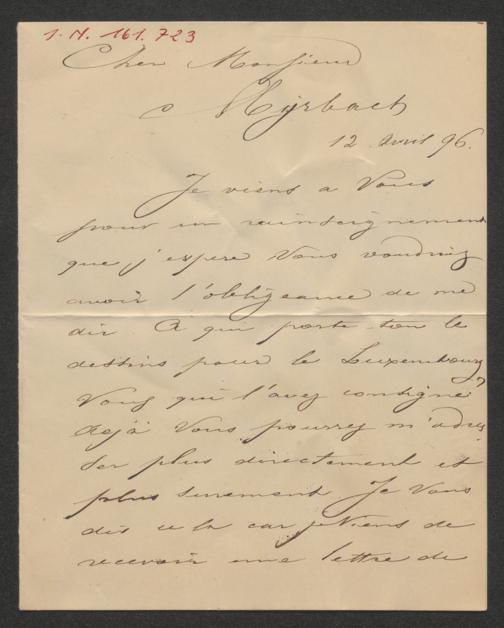 J. N. 161.723
Cher Monsieur
Myrbach
12 Avril 96.
Je viens a Vous
pour un rainseignement
que j'espere Vous voudriez
avoir l'obligeance de me
dir A qui porte ton le
dessins pour le Luxembourg
Vous qui l'avez consigné
dejà Vous pourrez m'adres
ser plus directement et
plus surement Je Vous
dis cela car je Viens de
recevoir une lettre de